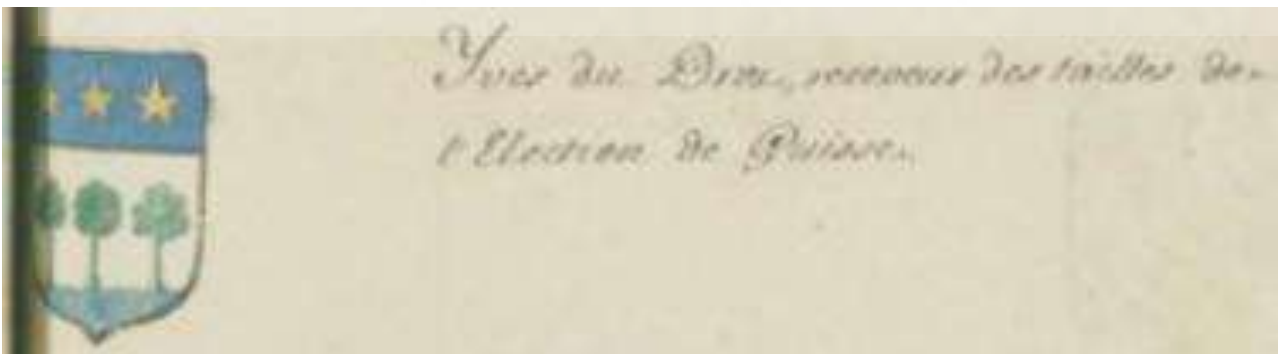 Yves du Dreu, receveur des tailles de
l'Election de Guise.